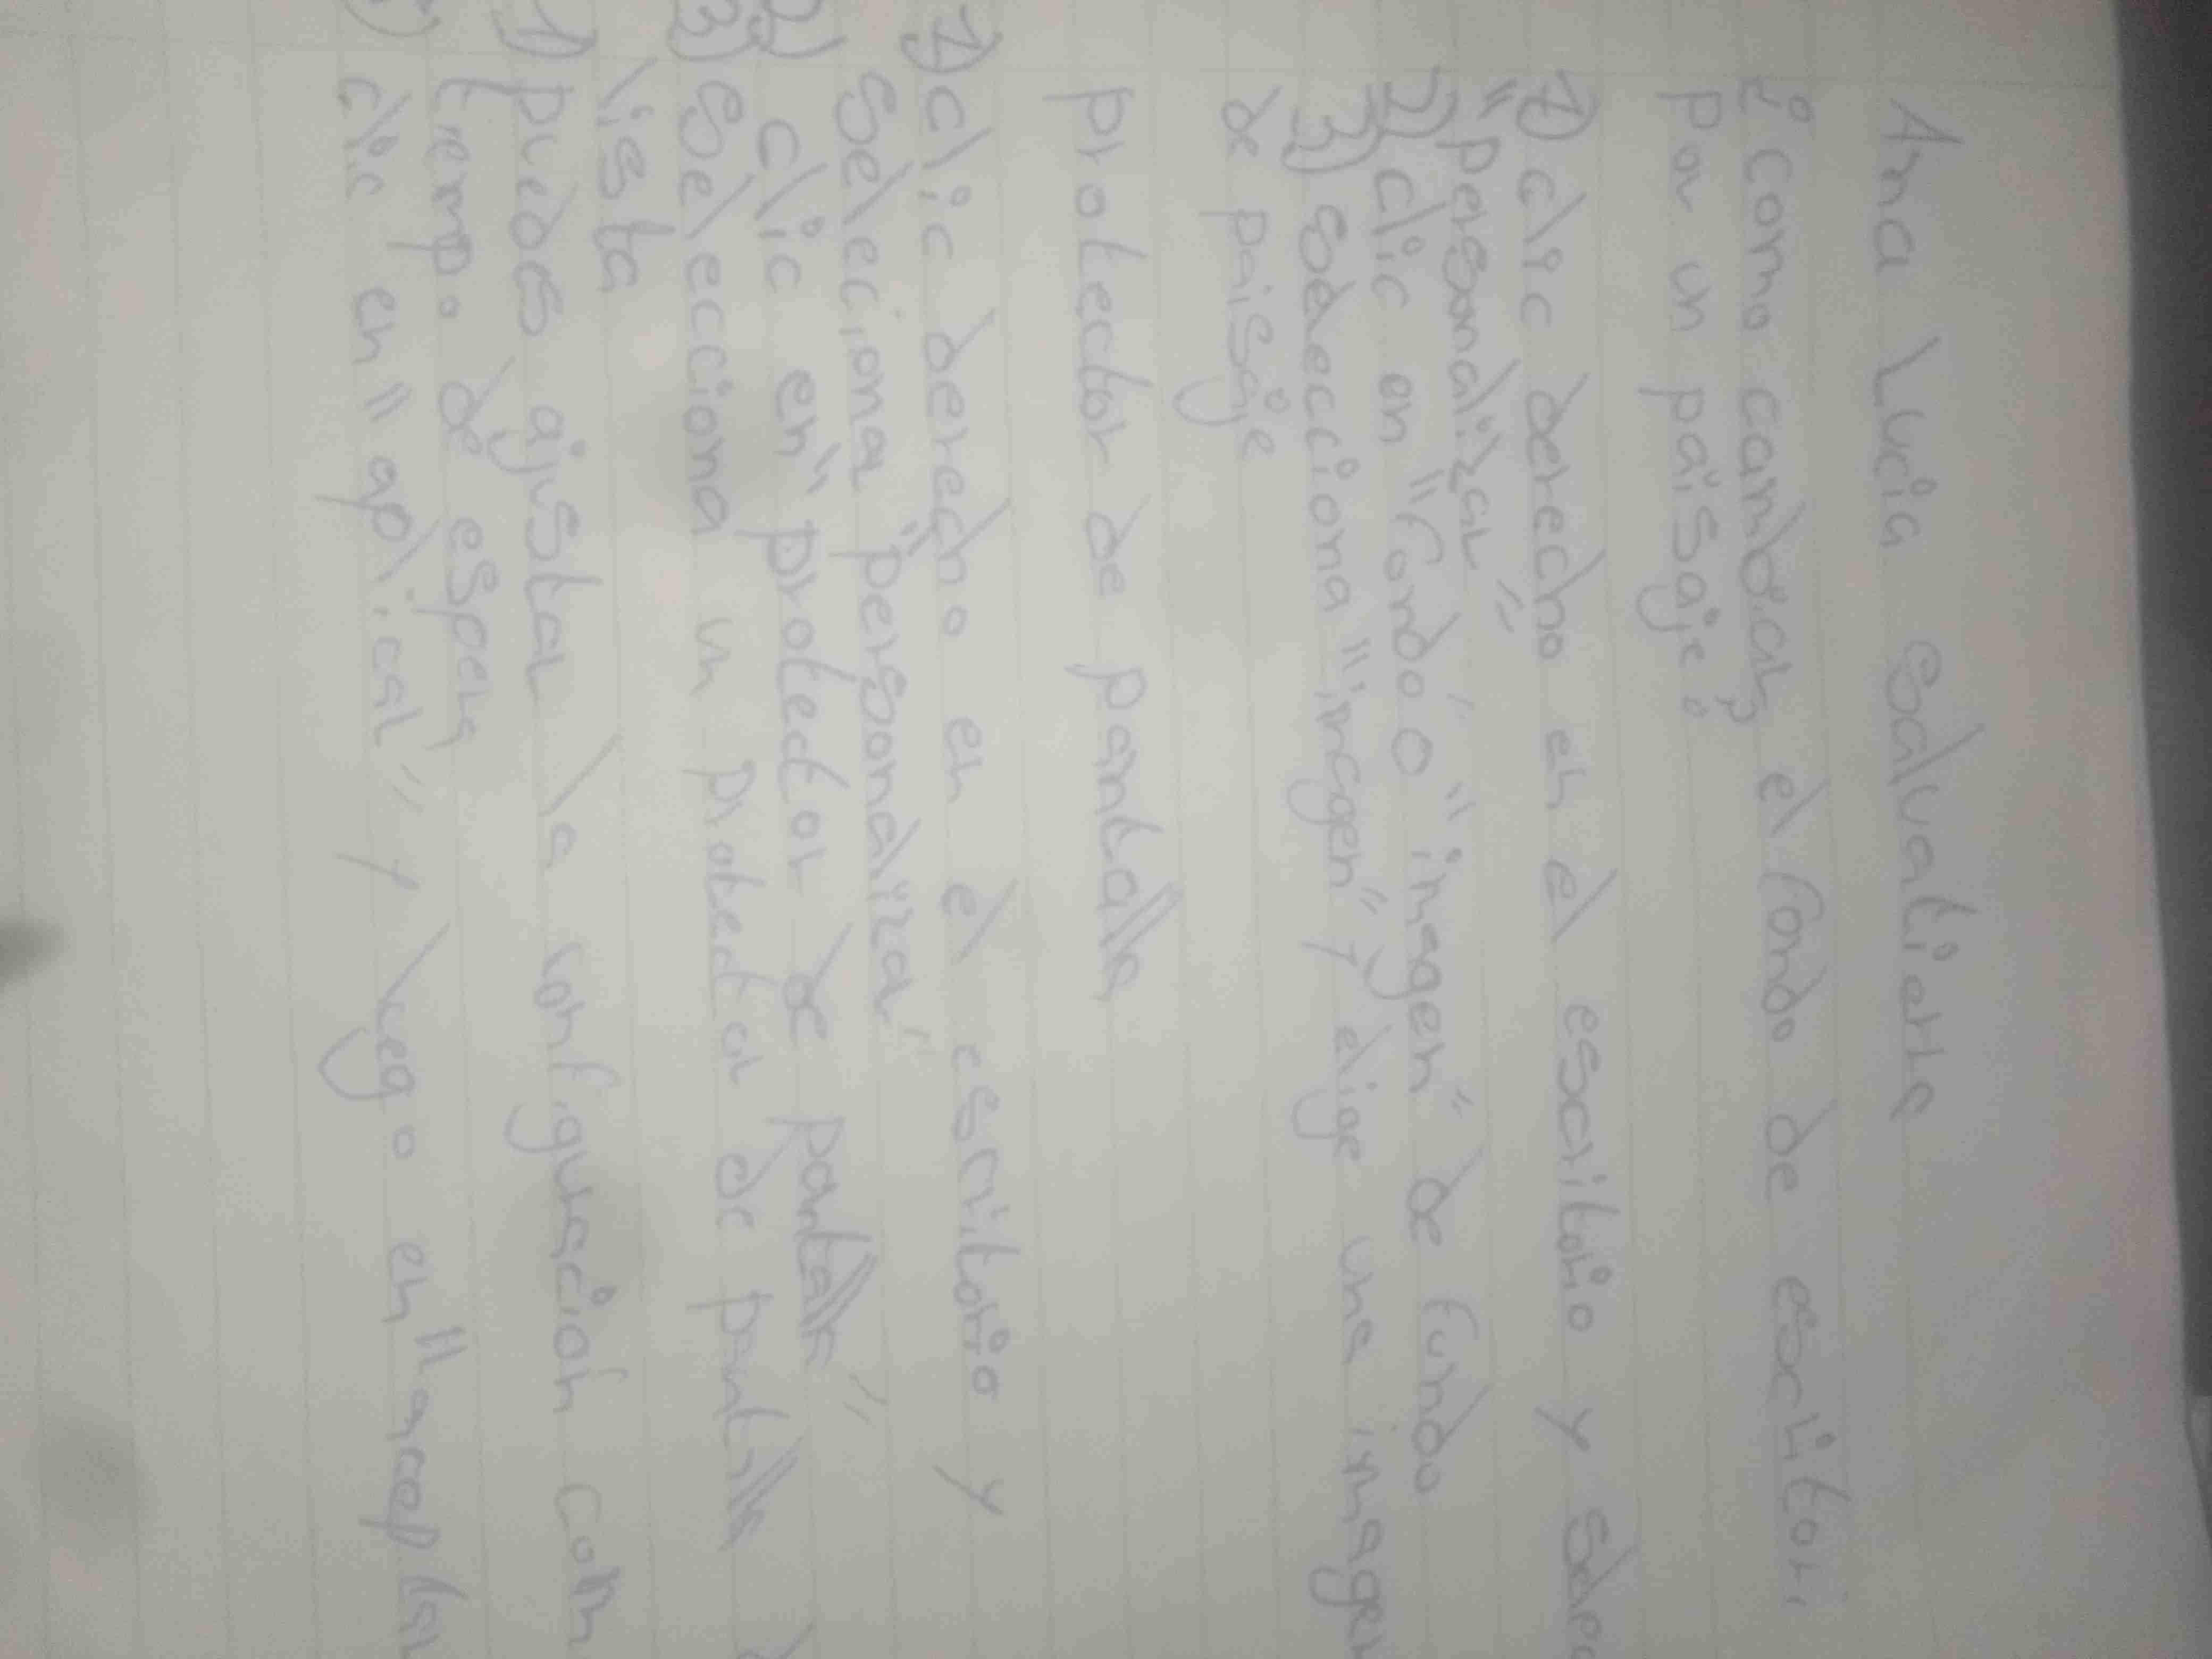 Ana Lucia Salvatierra
¿como cambiar el fondo de escritori
por un paisaje?
1) clic derecho en el escritorio y selec
"personalizar"
2) clic en "fondo o "imagen" de fundo
3) selecciona "imagen" y elige una imagen
de paisaje
protector de pantalla
1) clic derecho en el escritorio y
seleciona "personaliza"
2) clic en "protector de pantalla"
3) selecciona un protector de pantalla
lista
1) puedes ajustar la configuración com
tiempo de espera
clic en "aplicar" y luego en "aceptar